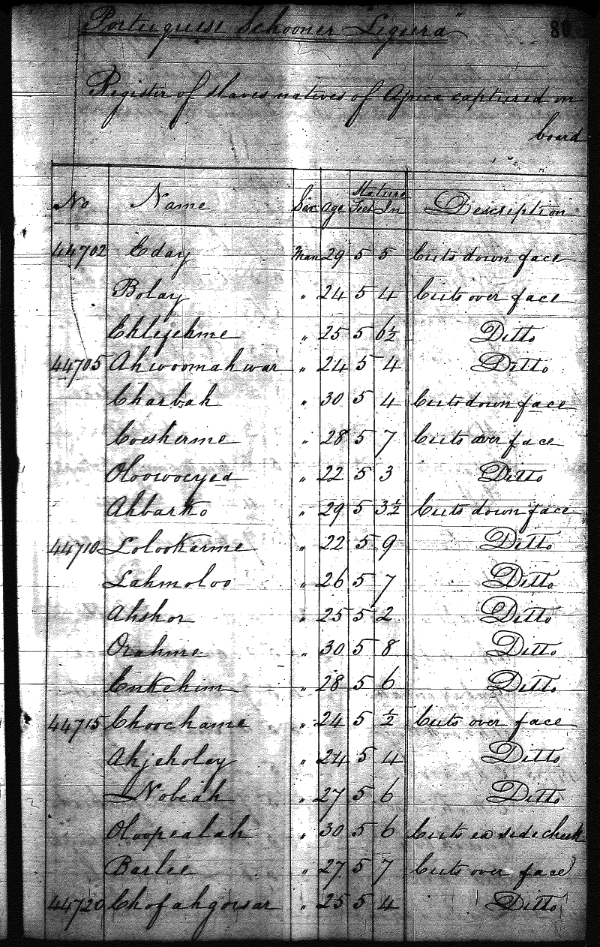 Portuguese Schooner "Ligera"
80
Register of slaves natives of Africa captured on
board
No Name Sex Age Stature Feet In Description
44702 Eday Man 29 5 5 Cuts down face
Bolay " 24 5 4 Cuts over face
" 25 5 6½ Ditto
44705 Ahwoomahwar " 24 5 4 Ditto
Charbah " 30 5 4 Cuts down face
" 28 5 7 Cuts over face
" 22 5 3 Ditto
Ahbarko " 29 5 3½ Cuts down face
44710 Lolookarme " 22 5 9 Ditto
Lahmoloo " 26 5 7 Ditto
Ahshor " 25 5 2 Ditto
Orahme " 30 5 8 Ditto
Enkehim " 28 5 6 Ditto
44715 Choochame " 24 5 ½ Cuts over face
Ahjeholey " 24 5 4 Ditto
Nobeah " 27 5 6 Ditto
Oloopealah " 30 5 6 Cuts ea side cheek
Barlee " 27 5 7 Cuts over face
44720 Chofahgowsar " 25 5 4 Ditto